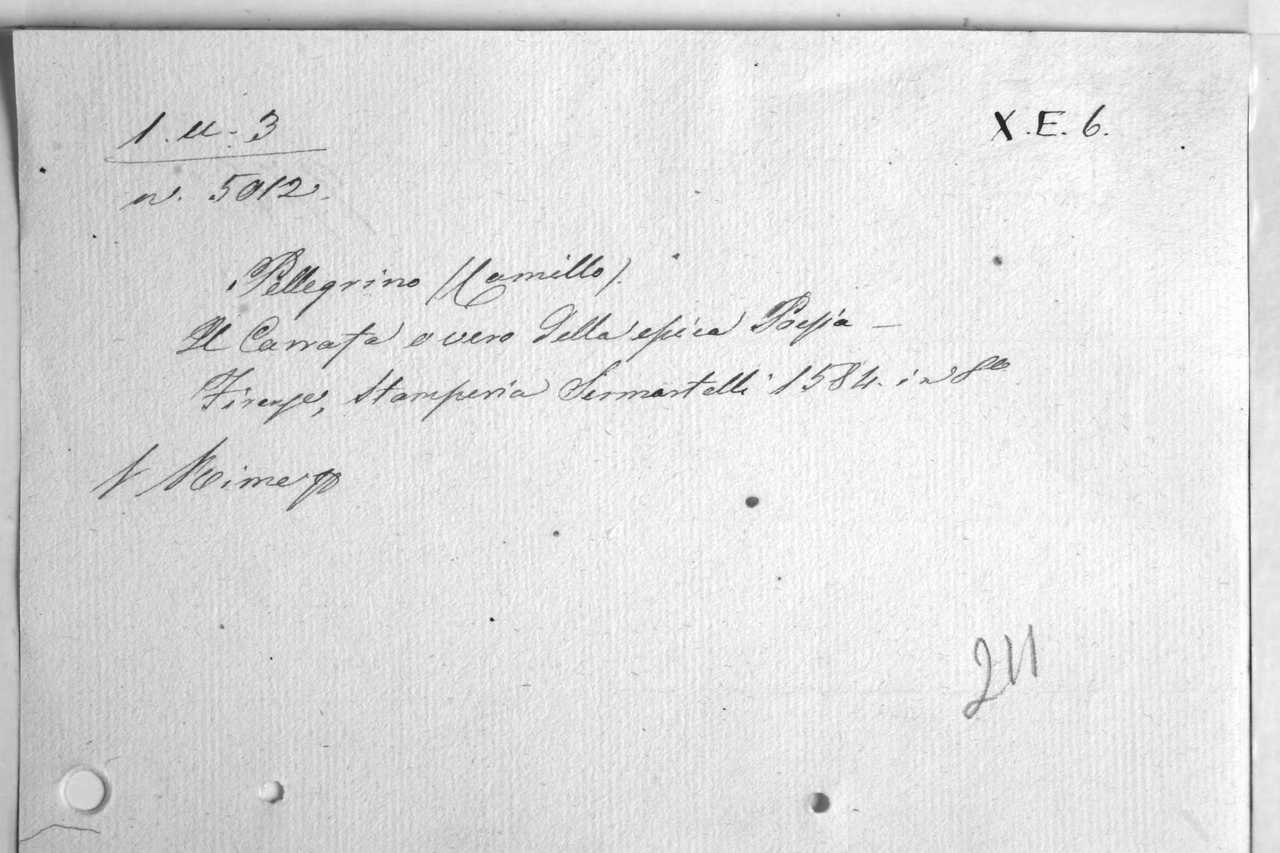 1. u. 3
X. E. 6.
n. 5012.
Pellegrino (Camillo).
Il Carrafa o vero della epica Poesia —
Firenze, Stamperia Sermartelli 1584. in 8º
V Rime
211